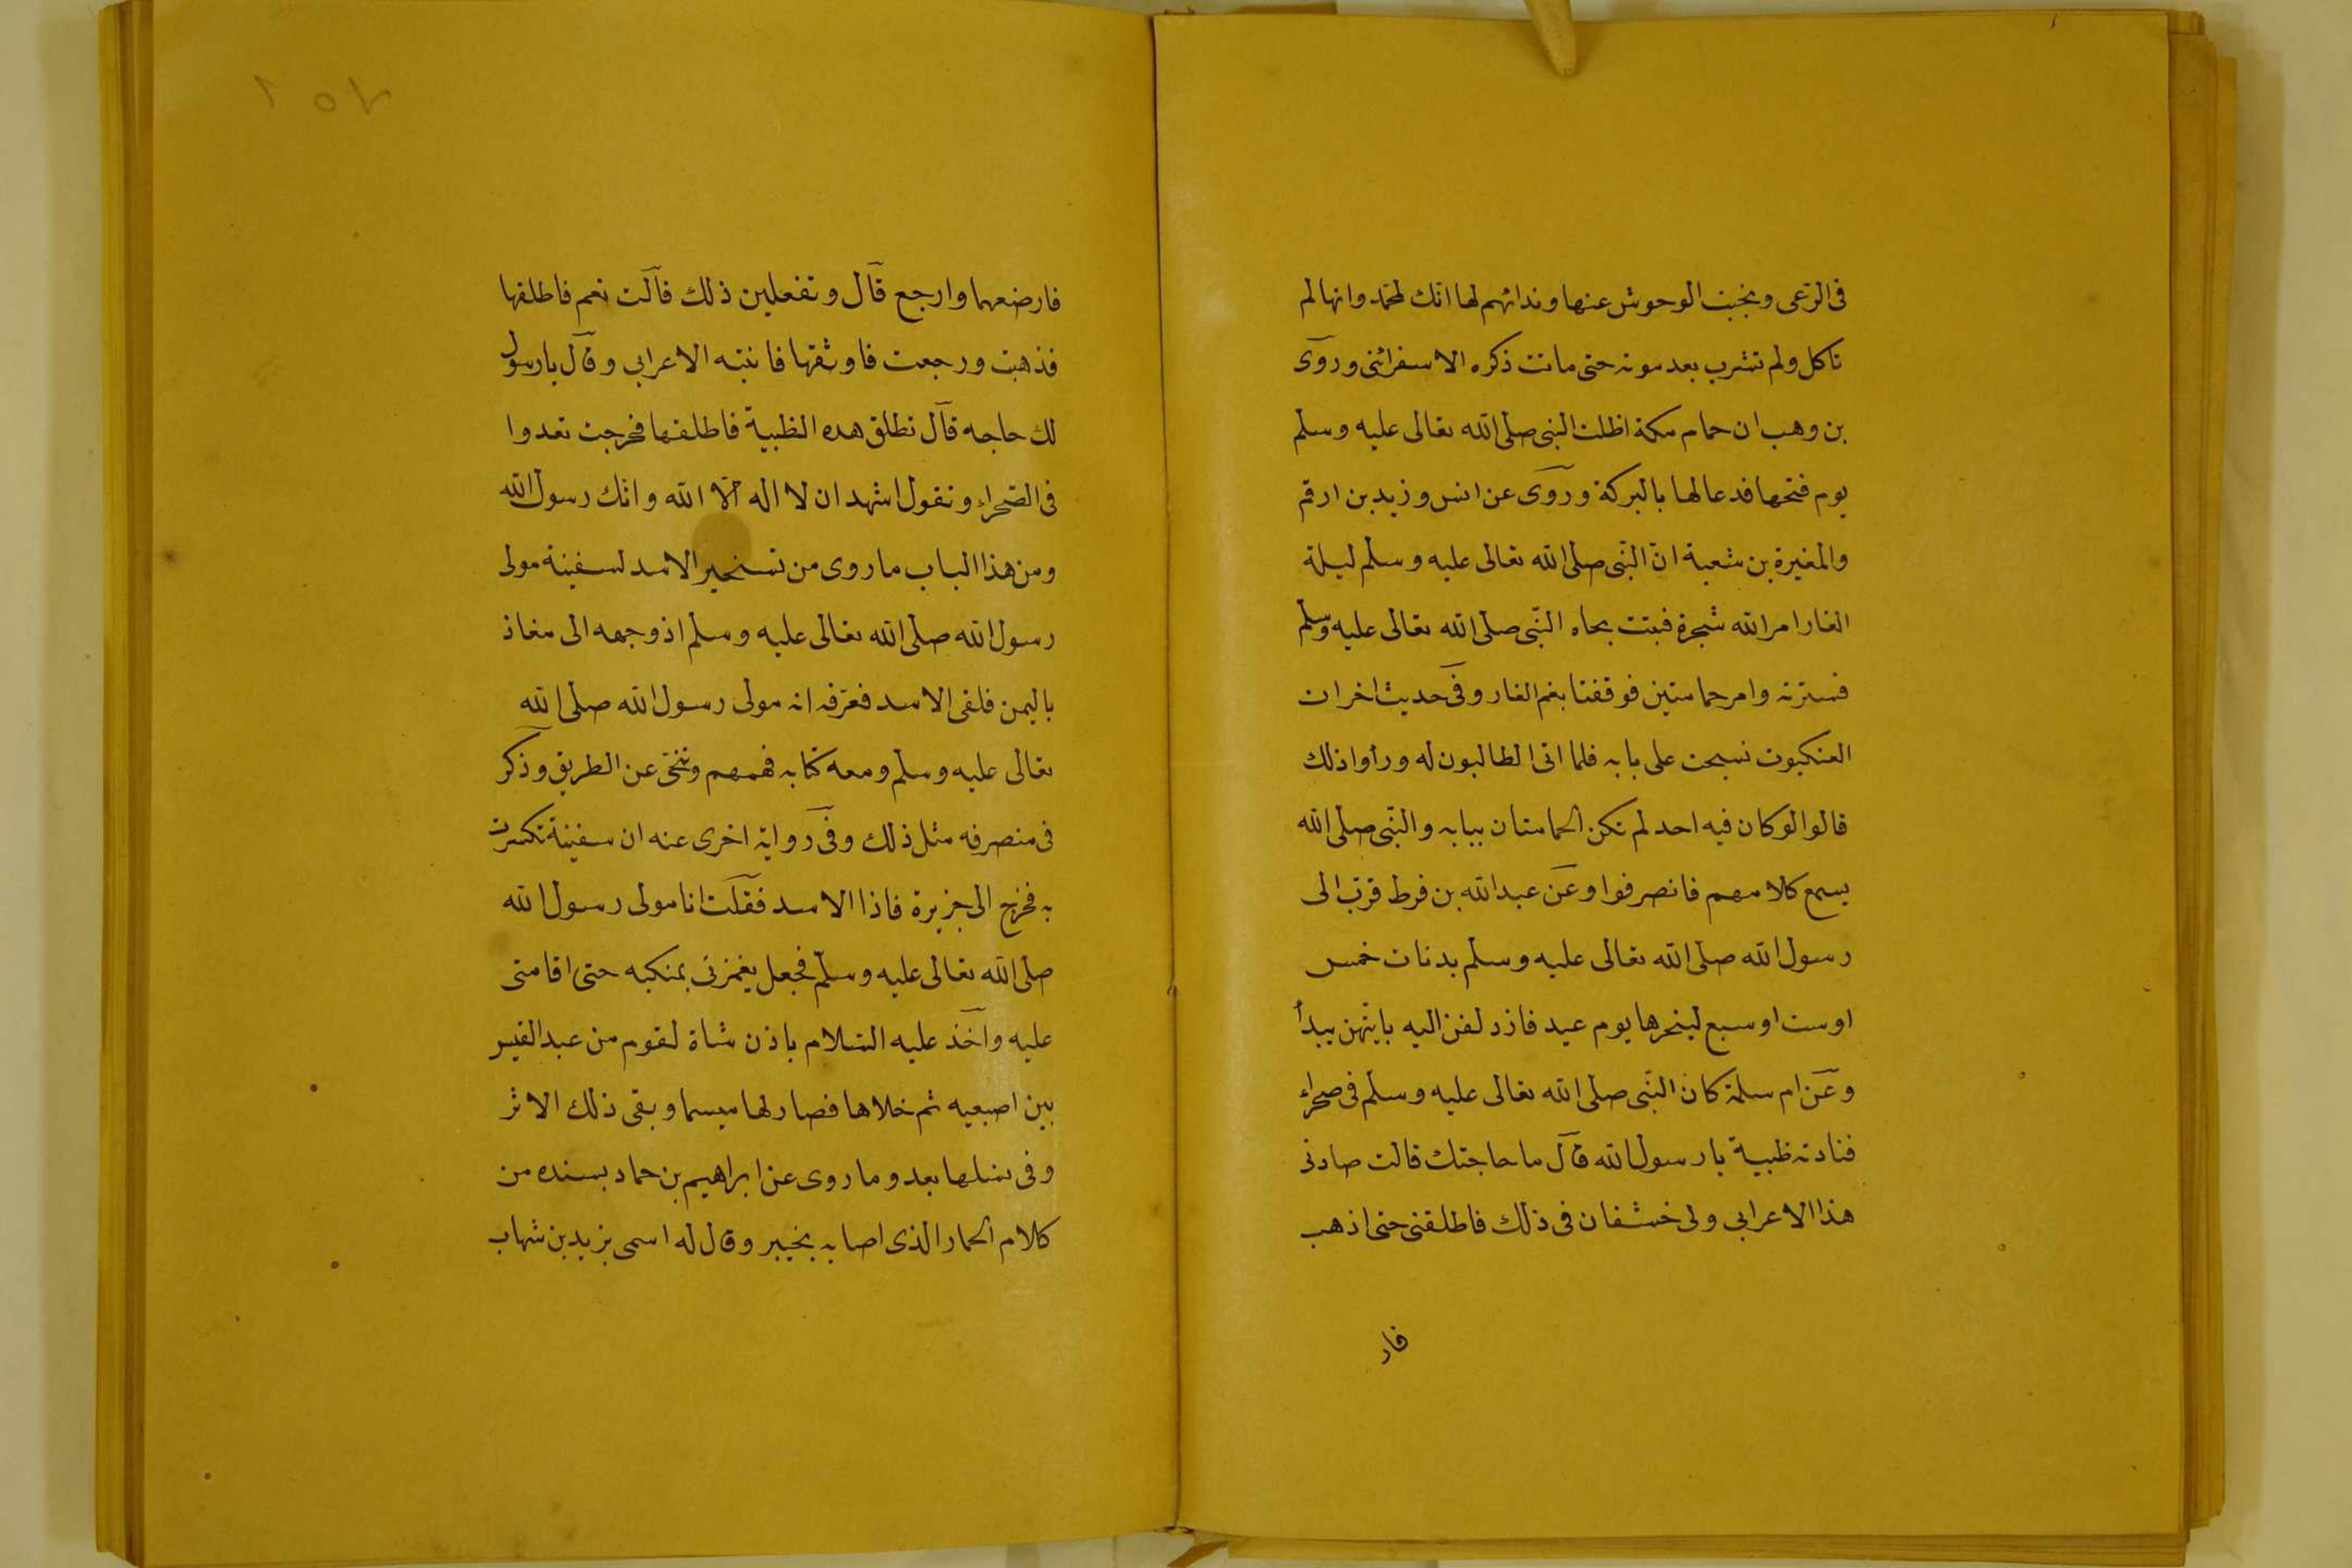 فى الرعى وتجنب الوحوش عنها وندائهم لها انك لمحمد وانها لم
تاكل ولم تشرب بعد موته حتى ماتت ذكره الاسفرائنى وروى
بن وهب ان حمام مكة اظلت النبى صلى الله تعالى عليه وسلم
يوم فتحها فدعا لها بالبركة وروى عن انس وزيد بن ارقم
والمغيرة بن شعبة ان النبى صلى الله تعالى عليه وسلم ليلة
الغار امر الله شجرة فبتت بجاه النبى صلى الله تعالى عليه وسلم
فسترته وامر حمامتين فوقفتا بفم الغار وفى حديث اخر ان
العنكبوت نسجت على بابه فلما اتى الطالبون له وراوا ذلك
قالوا لو كان فيه احد لم تكن الحمامتان ببابه والنبى صلى الله
يسمع كلامهم فانصرفوا وعن عبد الله بن قرط قرب الى
رسول الله صلى الله تعالى عليه وسلم بدنات خمس
اوست اوسبع لينحرها يوم عيد فازدلفن اليه بايتهن يبدأ
وعن ام سلمة كان النبى صلى الله تعالى عليه وسلم فى صحراء
فنادته ظبية يا رسول الله قال ما حاجتك قالت صادنى
هذا الاعرابى ولى خشفان فى ذلك فاطلقنى حتى اذهب
فار
١٥٢
فارضعهما وارجع قال وتفعلين ذلك قالت نعم فاطلقها
فذهبت ورجعت فاوثقها فانتبه الاعرابى وقال يارسول
لك حاجه قال تطلق هده الظبية فاطلقها فخرجت تعدوا
فى الصحراء وتقول اشهد ان لا اله الا الله وانك رسول الله
ومن هذا الباب ماروى من تسخير الاسد لسفينة مولى
رسول الله صلى الله تعالى عليه وسلم اذ وجهه الى معاذ
باليمن فلقى الاسد فعرفه انه مولى رسول الله صلى الله
تعالى عليه وسلم ومعه كتابه فهمهم وتنحى عن الطريق وذكر
فى منصرفه مثل ذلك وفى رواية اخرى عنه ان سفينة تكسرت
به فخرج الى جزيرة فاذا الاسد فقلت انا مولى رسول الله
صلى الله تعالى عليه وسلم فجعل يغمزنى بمنكبه حتى اقامنى
عليه واخذ عليه السلام باذن شاة لقوم من عبد القيس
بين اصبعيه ثم خلاها فصار لها ميسما وبقى ذلك الاثر
وفى نسلها بعد وما روى عن ابراهيم بن حماد بسنده من
كلام الحمار الذى اصابه بخيبر وقال له اسمى يزيد بن شهاب